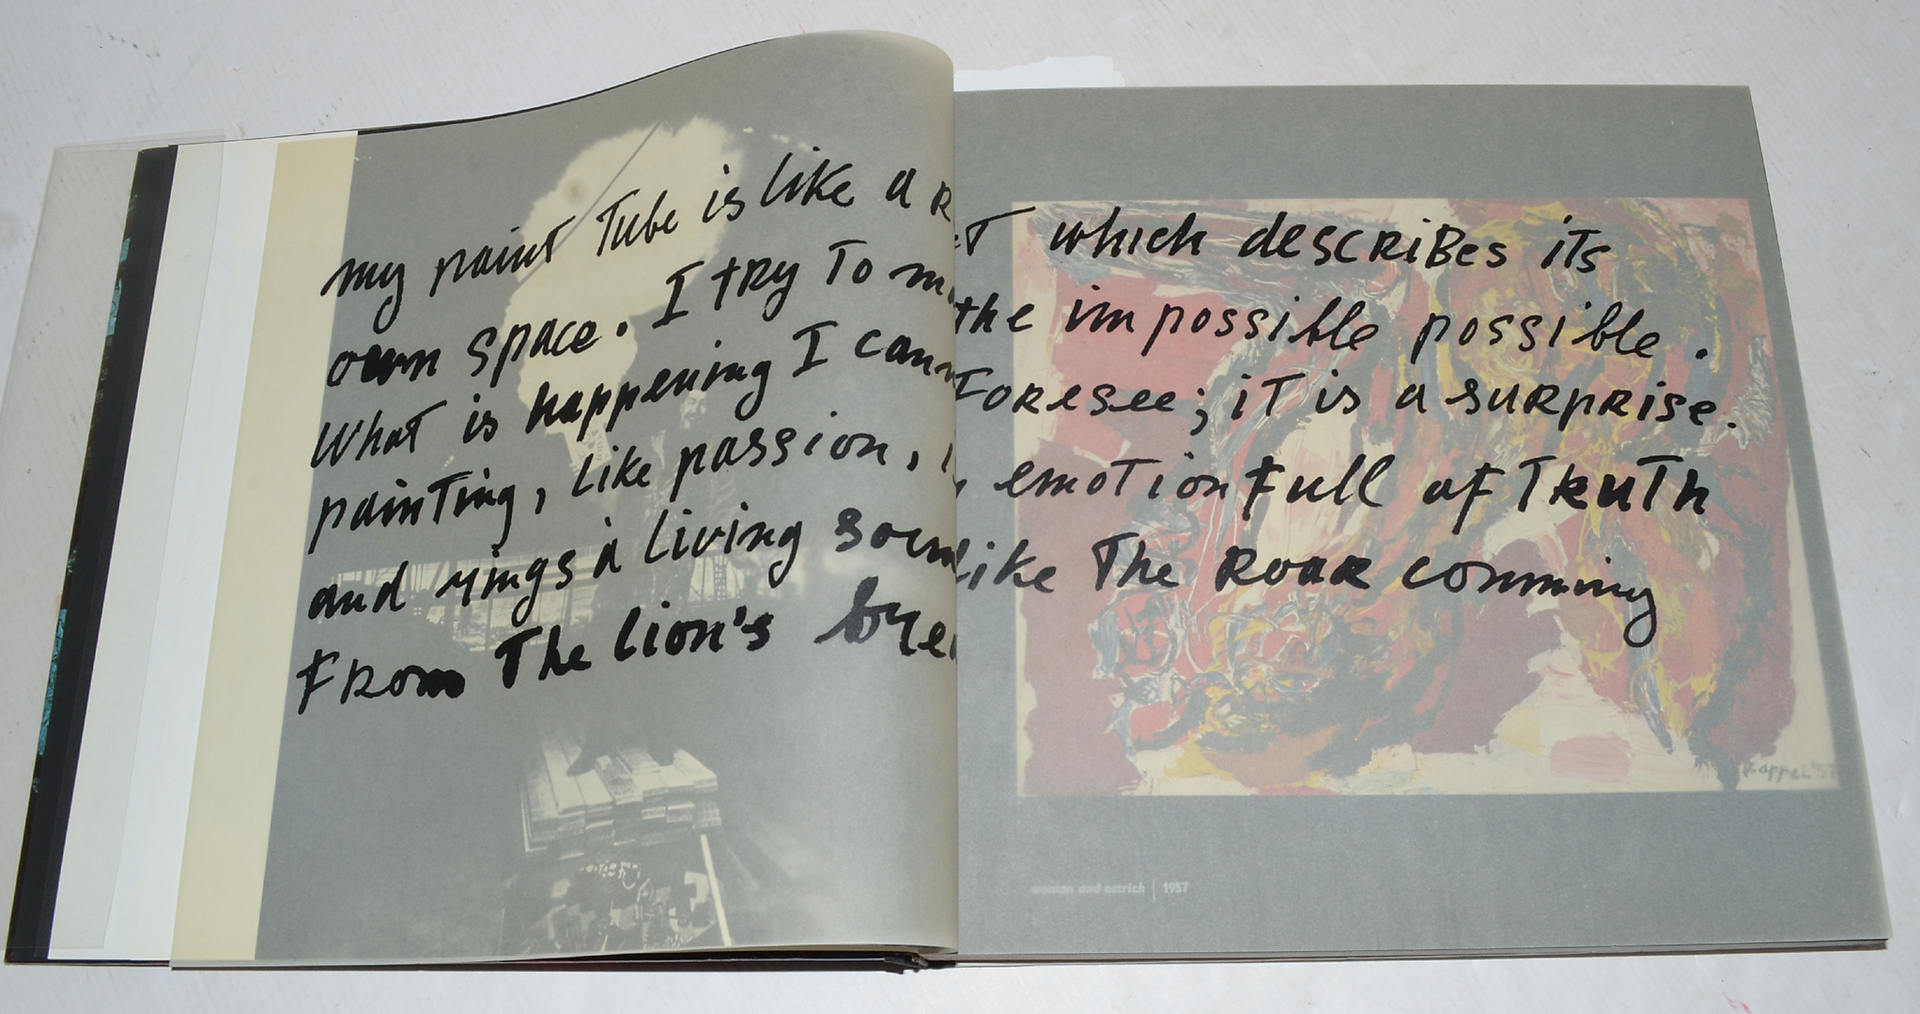 my paint Tube is like a which describes its
own space. I try To the impossible possible.
What is happening I foresee; it is a surprise.
painting, like passion, emotion full of Truth
and rings a living like The Roar comming
From The lion's
woman and ostrich | 1957
k. appel '57